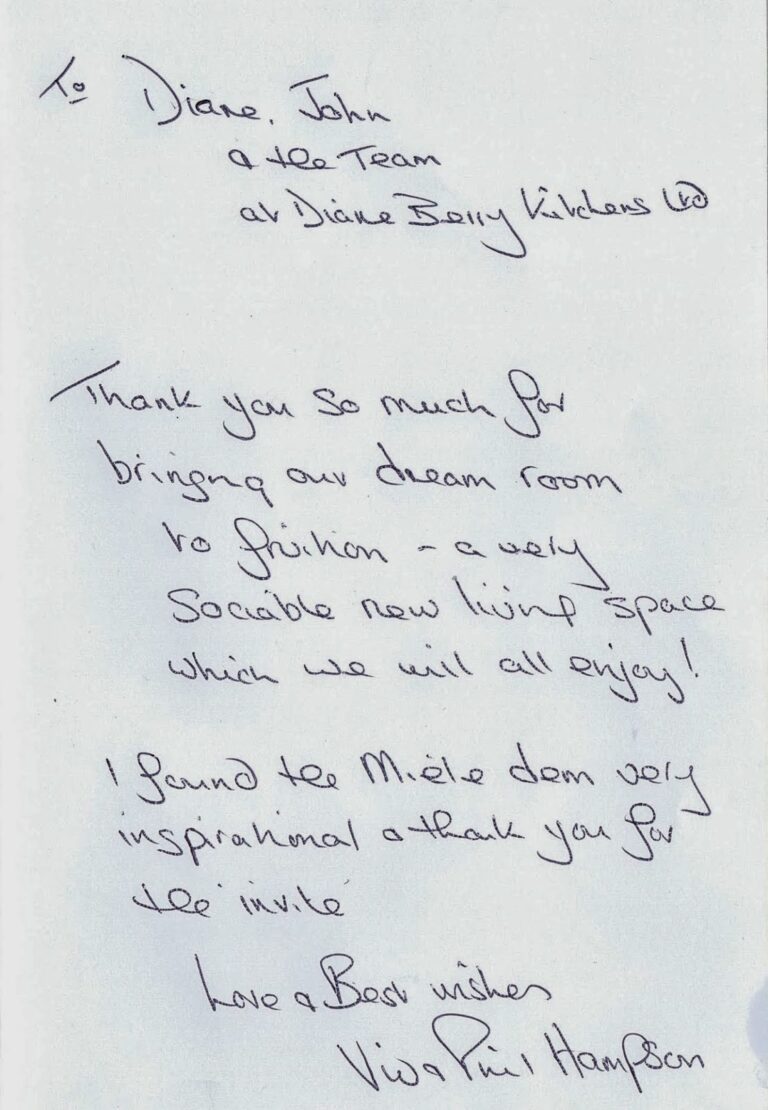 To Diane, John
& the Team
at Diane Berry Kitchens Ltd
Thank you so much for
bringing our dream room
to fruition - a very
sociable new living space
which we will all enjoy!
I found the Miele dem very
inspirational & thank you for
the invite
Love & Best wishes
Viv & Phil Hampson